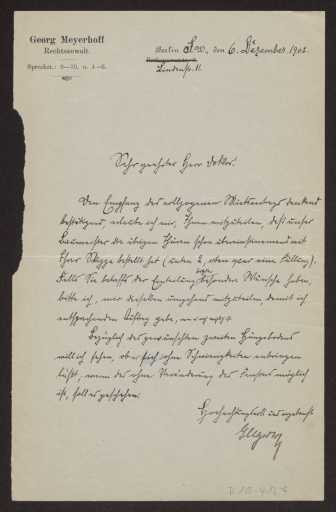 Georg Meyerhoff
Rechtsanwalt.
Sprechst.: 8—10, u. 4—6.
Berlin S.W., den 6. Dezember 1901.
Lindenstr. 11.
Sehr geehrter Herr Doktor!
Den Empfang des vollzogenen Mietvertrags dankend
bestätigend, erlaube ich mir, Ihnen mitzuteilen, daß unser
Baumeister die übrigen Thüren schon übereinstimmend mit
Ihrer Skizze bestellt hat (unten 2, oben quer eine Füllung).
Falls Sie betreffs der Einteilung besondere Wünsche haben,
bitte ich, mir dieselben umgehend mitzuteilen, damit ich
entsprechenden Auftrag gebe,
Bezüglich des gewünschten zweiten Hängebodens
will ich sehen, ob er sich ohne Schwierigkeiten anbringen
läßt, wenn das ohne Veränderung des Fensters möglich
ist, soll es geschehen.
Hochachtungsvoll und ergebenst